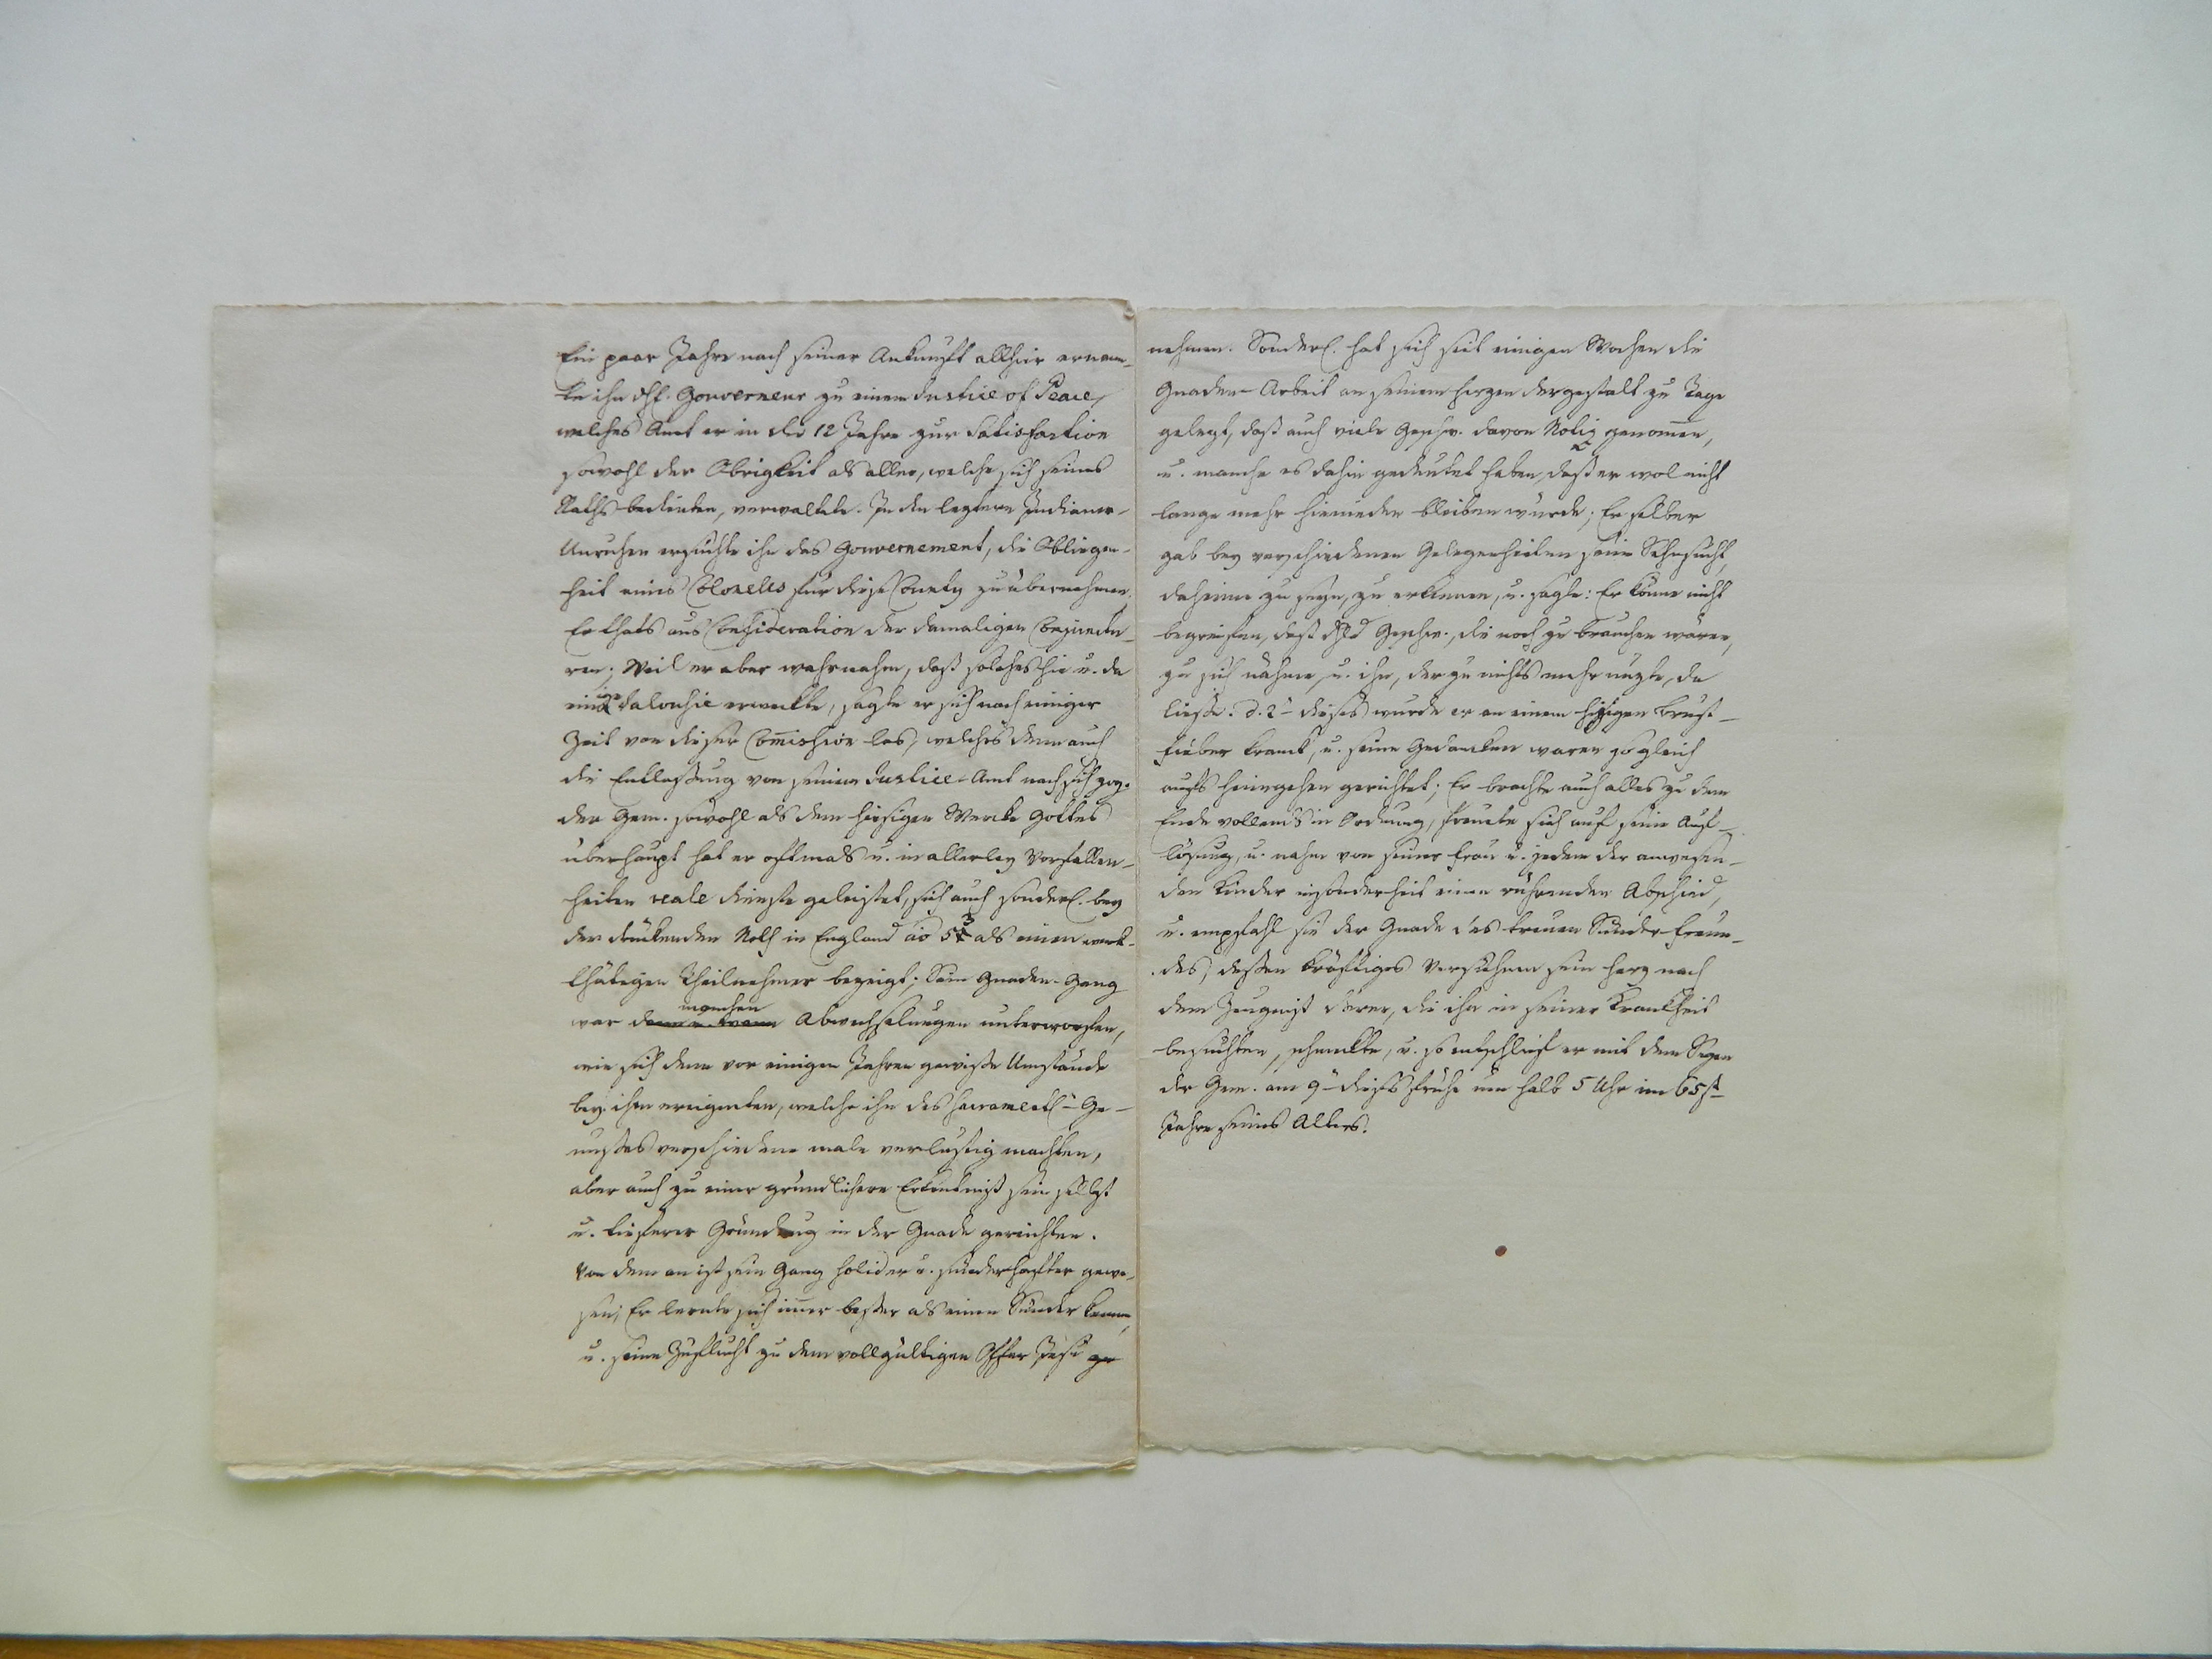 Ein paar Jahre nach seiner Ankunft allhier ernann-
te ihn dH. Gouverneur zu einem Justice of Peace,
welches Amt er in die 12 Jahre zur Satisfaction
sowohl der Obrigkeit als aller, welche sich seines
Raths bedienten, verwaltete. In den leztern Indianer-
Unruhen ersuchte ihn das Gouvernement, die Obliegen-
heit eines Colonells für diese County zu übernehmen.
Er thats aus Consideration der damaligen Conjunctu-
ren; Weil er aber wahrnahm, daß solches hie u. da
einige Jalousie erweckte, sagte er sich nach einiger
Zeit von dieser Com̄ission los, welches denn auch
die Entlassung von seinem Justice-Amt nach sich zog.
Der Gem. sowohl als dem hiesigen Wercke Gottes
überhaupt hat er oftmals u. in allerley Vorfallen-
heiten reale Dienste geleistet, sich auch sonderl. bey
der drückenden Noth in England ao 53 als einen werck-
thätigen Theilnehmer bezeigt; Sein Gnaden-Gang
war manchen Abwechselungen unterworfen,
wie sich denn vor einigen Jahren gewisse Umstände
bey ihm ereigneten, welche ihn des Sacramentl.n Ge-
nusses verschiedene male verlustig machten,
aber auch zu einer gründlichern Erkentniß sein selbst
u. tieferer Gründung in der Gnade gereichten.
Von dem an ist sein Gang solider u. sünderhafter gewe-
sen; Er lernte sich im̄er besser als einen Sünder kennen,
u. seine Zuflucht zu dem vollgültigen Opfer Jesu ge
nehmen. Sonderl. hat sich seit einigen Wochen die
Gnaden-Arbeit an seinem Herzen dergestalt zu Tage
gelegt, daß auch viele Geschw. davon Notiz genom̄en,
u. manche es dahin gedeutet haben, daß er wol nicht
lange mehr hienieden bleiben würde; Er selber
gab bey verschiedenen Gelegenheiten seine Sehnsucht,
daheime zu seyn, zu erkennen, u. sagte: Er könne nicht
begreifen, daß dHld Geschw., die noch zu brauchen wären,
zu sich nähme, u. ihn, der zu nichts mehr nuzte, da
liesse. d. 2n dieses wurde er an einem hizigen Brust-
fieber kranck, u. seine Gedancken waren sogleich
aufs Heimgehen gerichtet; Er brachte auch alles zu dem
Ende vollends in Ordnung, freute sich auf seine Auf-
lösung, u. nahm von seiner Frau u. jedem der anwesen-
den Kinder insonderheit einen rührenden Abschied,
u. empfahl sie der Gnade des treuen Sünder-Freun-
des, dessen kräftiges Versühnen sein Herz nach
dem Zeugniß derer, die ihn in seiner Krankheit
besuchten, schmeckte, u. so entschlief er mit dem Segen
der Gem. am 9n dieses frühe um halb 5 Uhr im 65st
Jahre seines Alters.